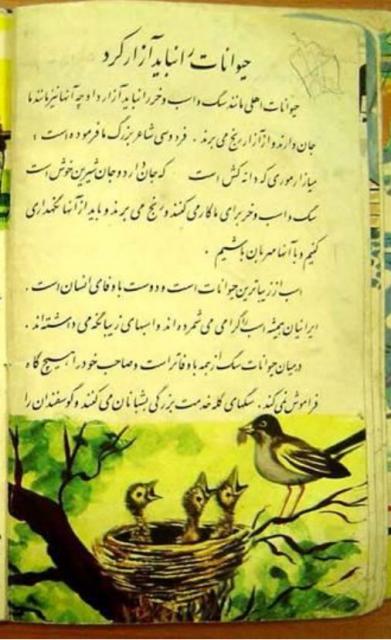 حیوانات را نباید آزار کرد
حیوانات اهلی مانند سگ و اسب و خر را نباید آزار داد چه آنها نیز مانند ما
جان دارند و از آزار رنج می برند . فردوسی شاعر بزرگ ما فرموده است :
میازار موری که دانه کش است که جان دارد و جان شیرین خوش است
سگ و اسب و خر برای ما کار می کنند و رنج می برند و باید از آنها نگهداری
کنیم و با آنها مهربان باشیم .
اسب از زیباترین حیوانات است و دوست با وفای انسان است .
ایرانیان همیشه اسب را گرامی می شمرده اند و اسبهای زیبا نگه می داشته اند .
در میان حیوانات سگ از همه با وفاتر است و صاحب خود را هیچ گاه
فراموش نمی کند . سگهای گله خدمت بزرگی بشبانان می کنند و گوسفندان را